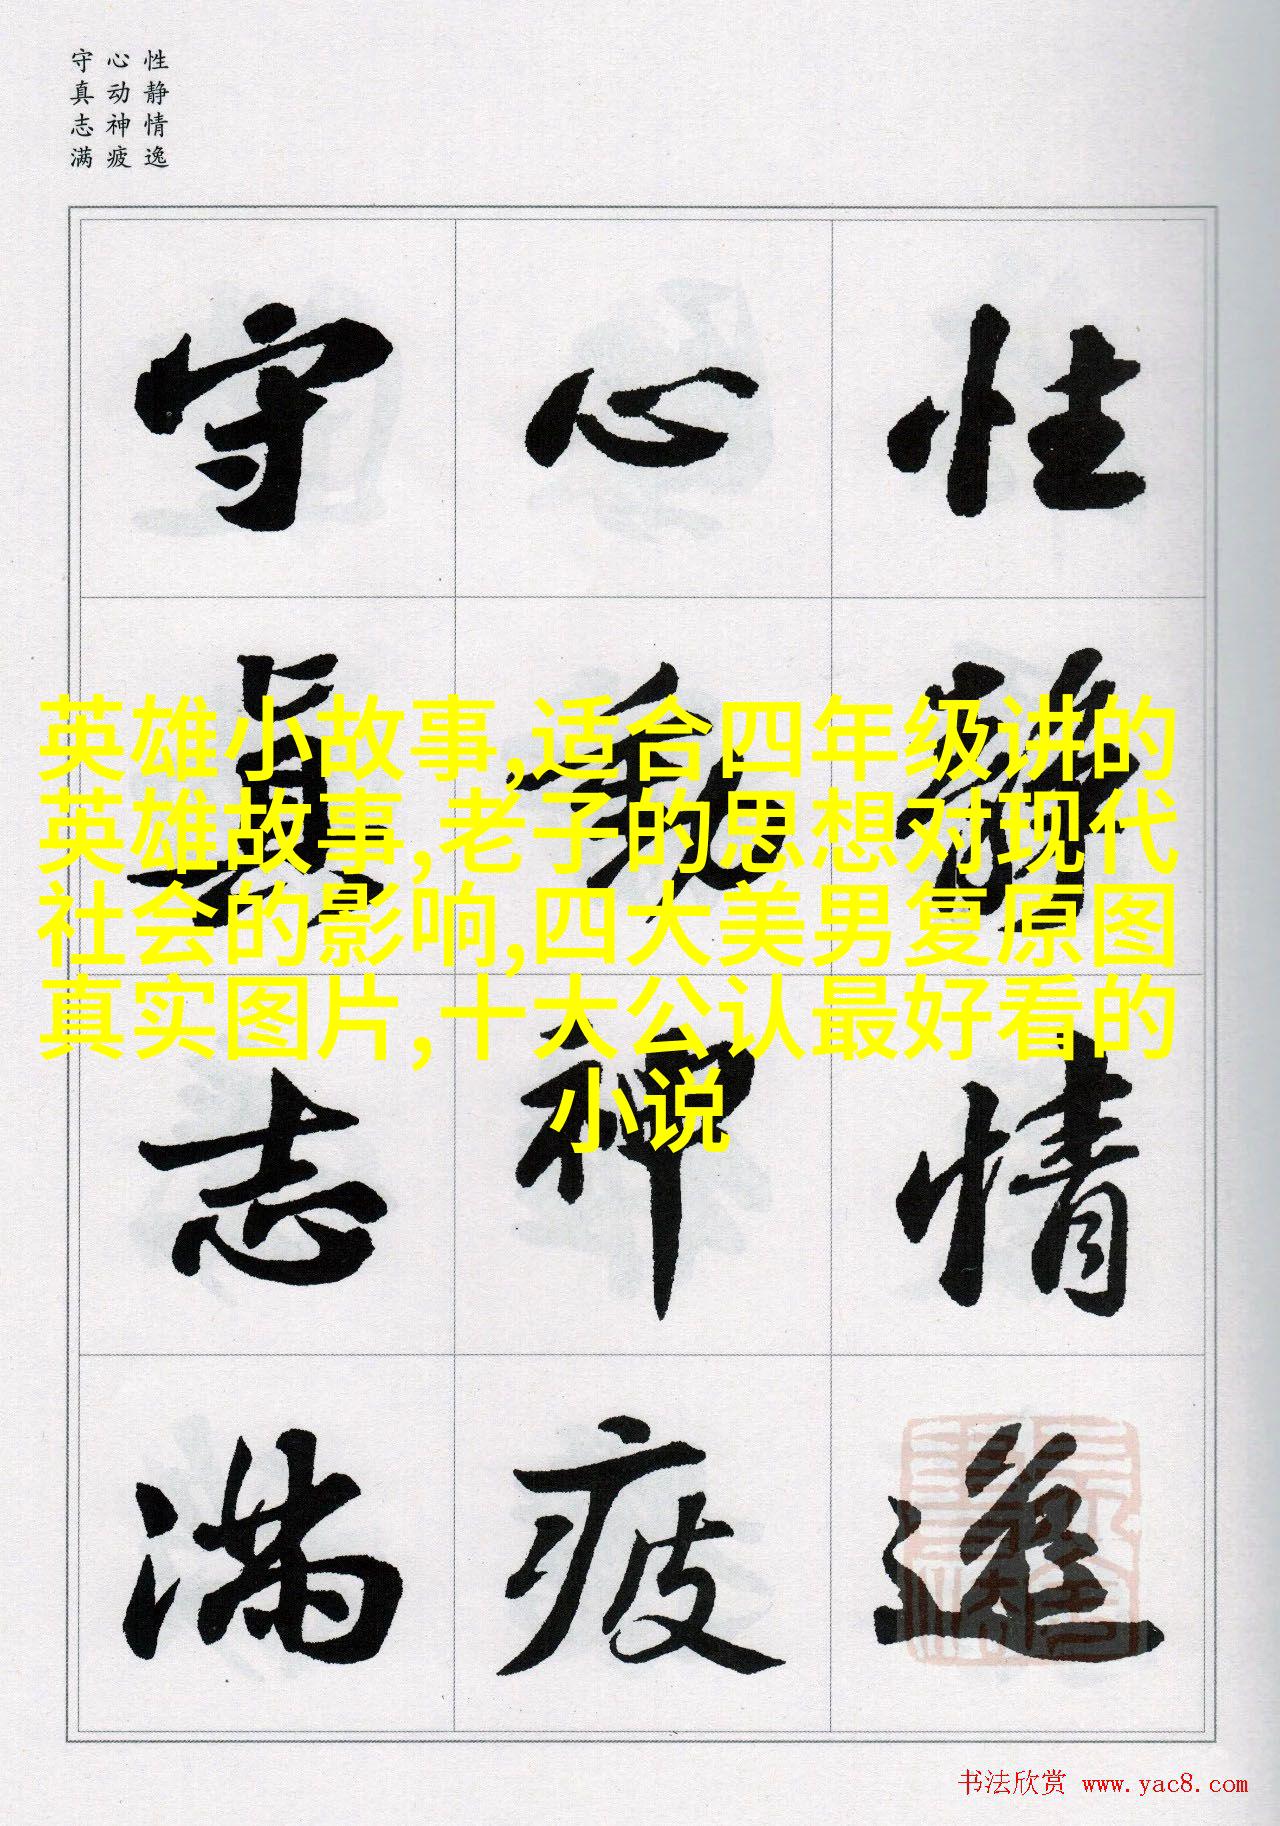 性静情逸
心动神疲
守真志满
性静情逸
心动神疲
守真志满
英雄小故事,适合四年级讲的
英雄故事,老子的思想对现代
社会的影响,四大美男复原图
真实图片,十大公认最好看的
小说
书法欣赏 www.yac8.com